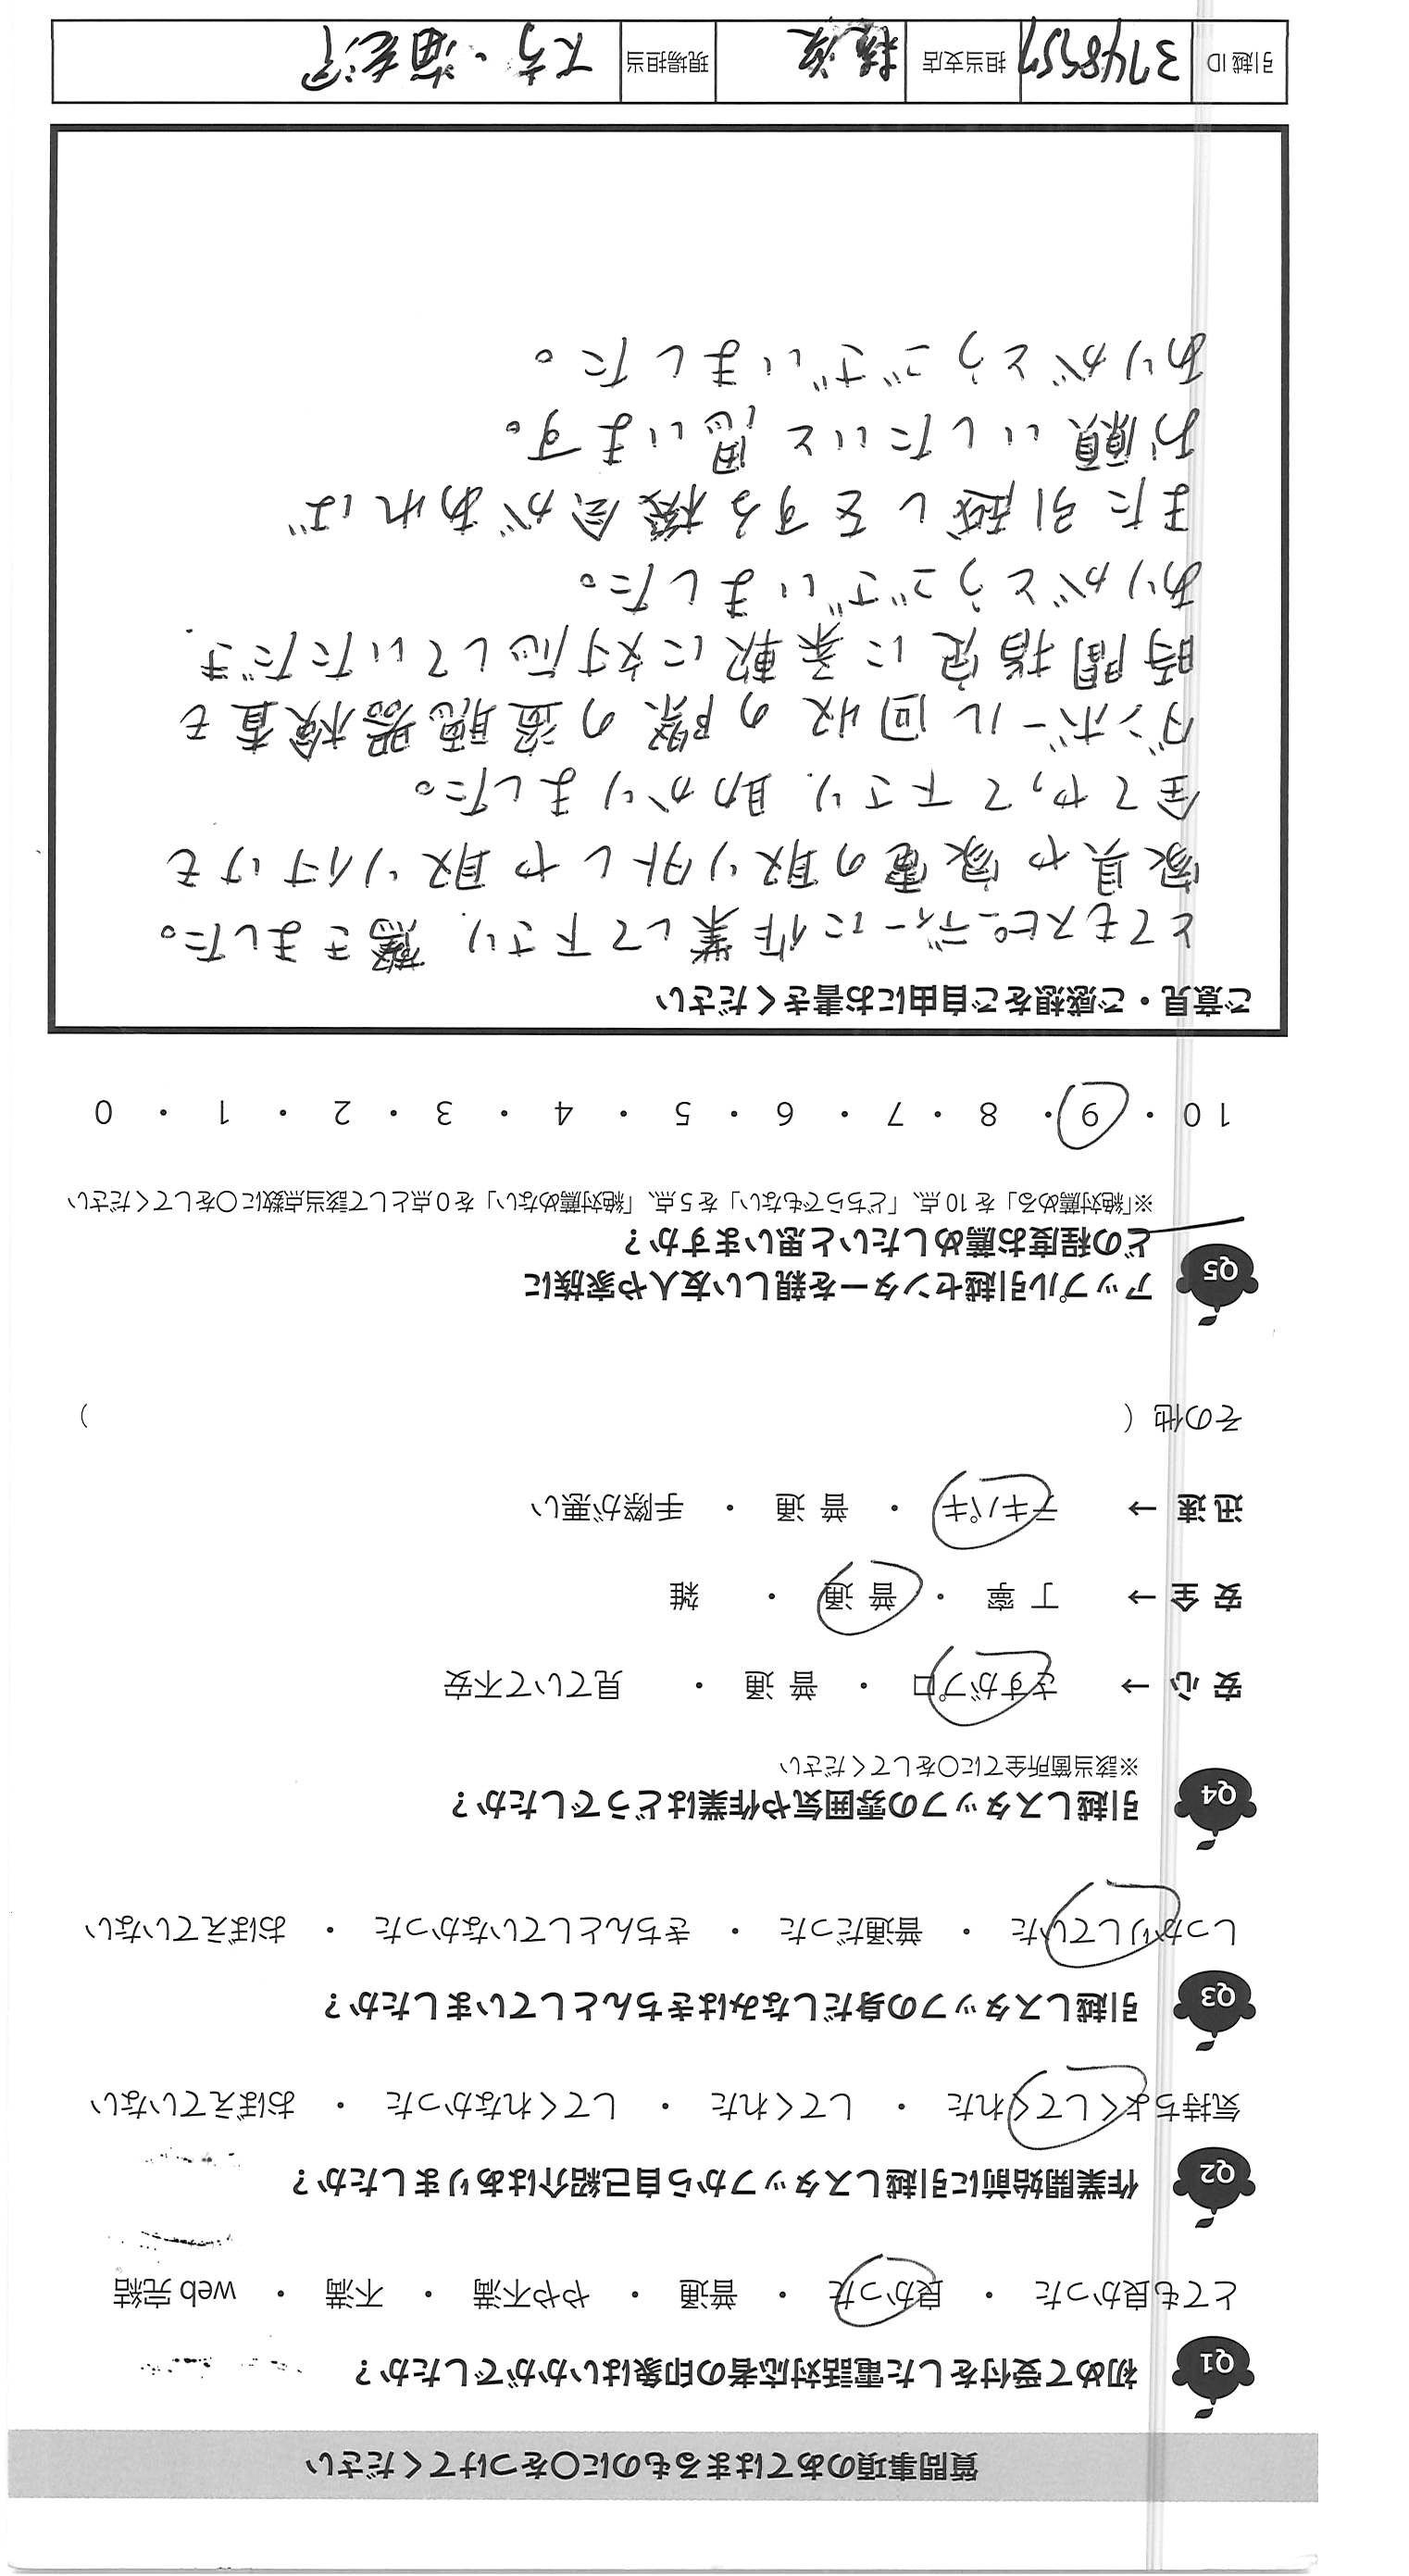 質問事項のあてはまるものに〇をつけてください
Q1 初めて受付をした電話対応者の印象はいかがでしたか？
とても良かった ・ 良かった ・ 普通 ・ やや不満 ・ 不満 ・ web 完結
Q2 作業開始前に引越しスタッフから自己紹介はありましたか？
気持ちよくしてくれた ・ してくれた ・ してくれなかった ・ おぼえていない
Q3 引越しスタッフの身だしなみはきちんとしていましたか？
しっかりしていた ・ 普通だった ・ きちんとしていなかった ・ おぼえていない
Q4 引越しスタッフの雰囲気や作業はどうでしたか？
※該当箇所全てに〇をしてください
安 心 → さすがプロ ・ 普 通 ・ 見ていて不安
安 全 → 丁 寧 ・ 普 通 ・ 雑
迅 速 → テキパキ ・ 普 通 ・ 手際が悪い
その他（ ）
Q5 アップル引越センターを親しい友人や家族に
どの程度お薦めしたいと思いますか？
※「絶対薦める」を 10 点、「どちらでもない」を 5 点、「絶対薦めない」を 0 点として該当点数に〇をしてください
10 ・ 9 ・ 8 ・ 7 ・ 6 ・ 5 ・ 4 ・ 3 ・ 2 ・ 1 ・ 0
ご意見・ご感想をご自由にお書きください
とてもスピーディーに作業して下さり、驚きました。
家具や家電の取り外しや取り付けも
全てやって下さり、助かりました。
ダンボール回収の際の盗聴器検査も
時間指定に柔軟に対応していただき、
ありがとうございました。
また引越しをする機会があれば
お願いしたいと思います。
ありがとうございました。
引越ID 3748557 担当支店 横浜 現場担当